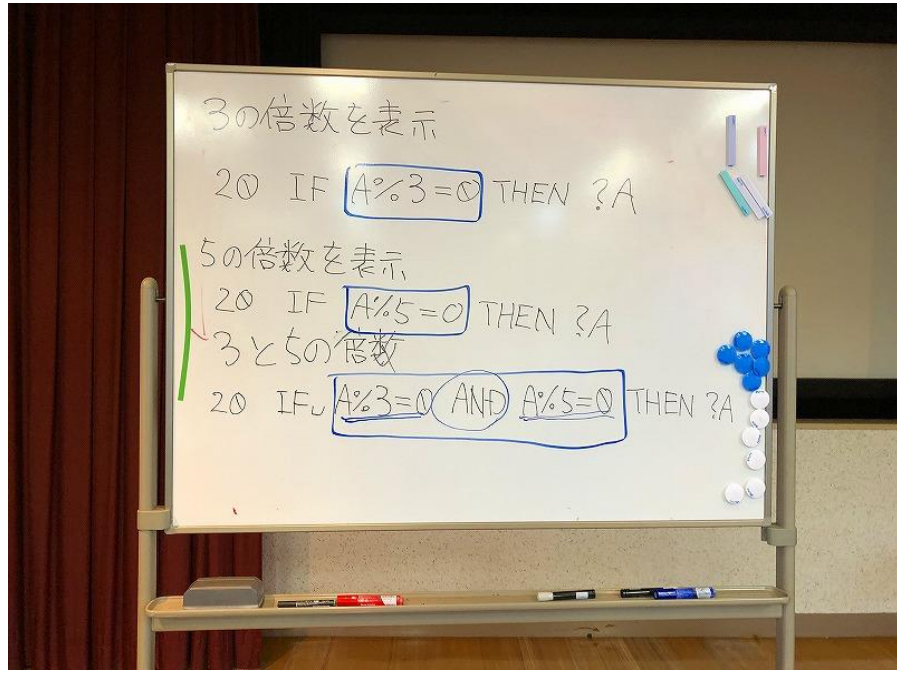 3の倍数を表示
20 IF A%3=0 THEN ?A
5の倍数を表示
20 IF A%5=0 THEN ?A
3と5の倍数
20 IF␣A%3=0 AND A%5=0 THEN ?A